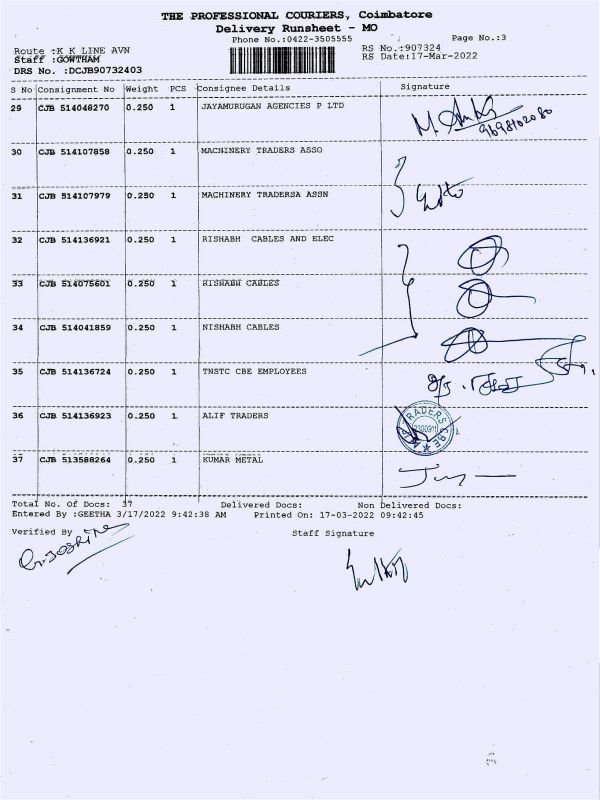 THE PROFESSIONAL COURIERS, Coimbatore
Delivery Runsheet - MO
Phone No.:0422-3505555 Page No.:3
Route :K K LINE AVN RS No.:907324
Staff :GOWTHAM RS Date:17-Mar-2022
DRS No. :DCJB90732403
S No Consignment No Weight PCS Consignee Details Signature
29 CJB 514048270 0.250 1 JAYAMURUGAN AGENCIES P LTD
9698102080
30 CJB 514107858 0.250 1 MACHINERY TRADERS ASSO
31 CJB 514107979 0.250 1 MACHINERY TRADERSA ASSN
32 CJB 514136921 0.250 1 RISHABH CABLES AND ELEC
33 CJB 514075601 0.250 1 RISHABH CABLES
34 CJB 514041859 0.250 1 NISHABH CABLES
35 CJB 514136724 0.250 1 TNSTC CBE EMPLOYEES
36 CJB 514136923 0.250 1 ALIF TRADERS
TRADERS CBE
37 CJB 513588264 0.250 1 KUMAR METAL
Total No. Of Docs: 37 Delivered Docs: Non Delivered Docs:
Entered By :GEETHA 3/17/2022 9:42:38 AM Printed On: 17-03-2022 09:42:45
Verified By Staff Signature